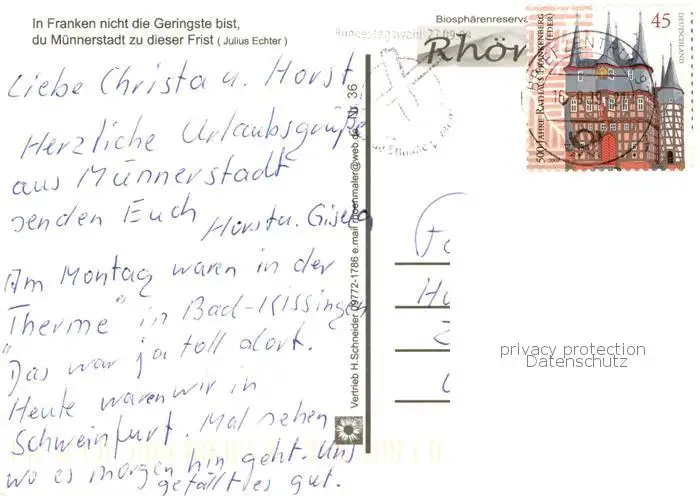 In Franken nicht die Geringste bist,
du Münnerstadt zu dieser Frist ( Julius Echter )
Liebe Christa u. Horst
Herzliche Urlaubsgrüße
aus Münnerstadt
senden Euch Horst u. Gisela
Am Montag waren in der
"Therme" in Bad-Kissingen
Das war ja toll dort.
Heute waren wir in
Schweinfurt. Mal sehen
wo es morgen hin geht. Uns
gefällt es gut.
Vertrieb H.Schneider 09772-1786 e.mail @web.de Nr. 36
Biosphärenreserva
Rhön
Bundestagswahl 27.09.09
BRIEFZENTRUM
500 JAHRE RATHAUS FRANKENBERG (EDER)
45
DEUTSCHLAND
2009
privacy protection
Datenschutz